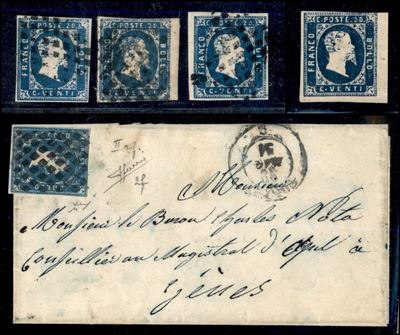 C. POSTE 20. C. POSTE 20. C. POSTE 20. C. POSTE 20.
FRANCO BOLLO FRANCO BOLLO FRANCO BOLLO FRANCO BOLLO
C. VENTI C. VENTI C. VENTI C. VENTI
II
Monsieur
Monsieur le Baron Charles Nota
Conseillier au Magistrat d'Apel à
Gènes